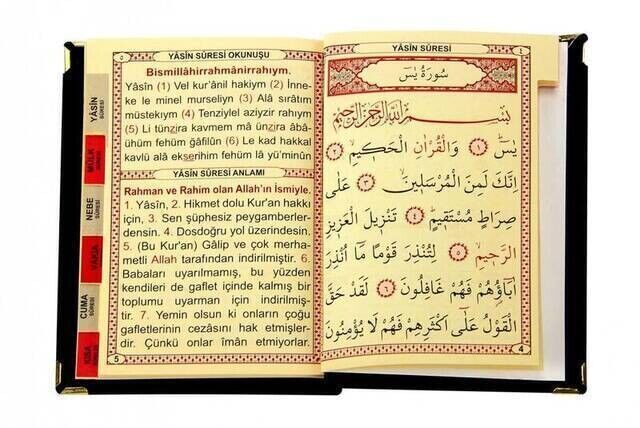 YÂSİN SÛRESİ
٤
سُورَةُ يٰسٓ
بِسْــــمِ اللّٰهِ الرَّحْمٰنِ الرَّحٖيمِ
يٰسٓ ﴿١﴾ وَالْقُرْاٰنِ الْحَكٖيمِ ﴿٢﴾
اِنَّكَ لَمِنَ الْمُرْسَلٖينَ ﴿٣﴾ عَلٰى
صِرَاطٍ مُسْتَقٖيمٍ ﴿٤﴾ تَنْزٖيلَ الْعَزٖيزِ
الرَّحٖيمِ ﴿٥﴾ لِتُنْذِرَ قَوْمًا مَٓا اُنْذِرَ
اٰبَٓاؤُ۬هُمْ فَهُمْ غَافِلُونَ ﴿٦﴾ لَقَدْ حَقَّ
الْقَوْلُ عَلٰٓى اَكْثَرِهِمْ فَهُمْ لَا يُؤْمِنُونَ
4
٥
YÂSİN SÛRESİ OKUNUŞU
Bismillâhirrahmânirrahıym.
Yâsîn (1) Vel kur'ânil hakiym (2) İnne-
ke le minel murseliyn (3) Alâ sırâtım
müstekıym (4) Tenziylel aziyzir rahıym
(5) Li tünzira kavmem mâ ünzira âbâ-
ühüm fehüm ğâfilûn (6) Le kad hakkal
kavlü alâ ekserihim fehüm lâ yü'minûn
YÂSİN SÛRESİ ANLAMI
Rahman ve Rahim olan Allah'ın İsmiyle.
1. Yâsîn, 2. Hikmet dolu Kur'an hakkı
için, 3. Sen şüphesiz peygamberler-
densin. 4. Dosdoğru yol üzerindesin.
5. (Bu Kur'an) Gâlip ve çok merha-
metli Allah tarafından indirilmiştir. 6.
Babaları uyarılmamış, bu yüzden
kendileri de gaflet içinde kalmış bir
toplumu uyarman için indirilmiş-
tir. 7. Yemin olsun ki onların çoğu
gafletlerinin cezâsını hak etmişler-
dir. Çünkü onlar îmân etmiyorlar.
5
YÂSİN
SÛRESİ
MÜLK
NEBE
SÛRESİ
VAKIA
CUMA
SÛRESİ
KISA